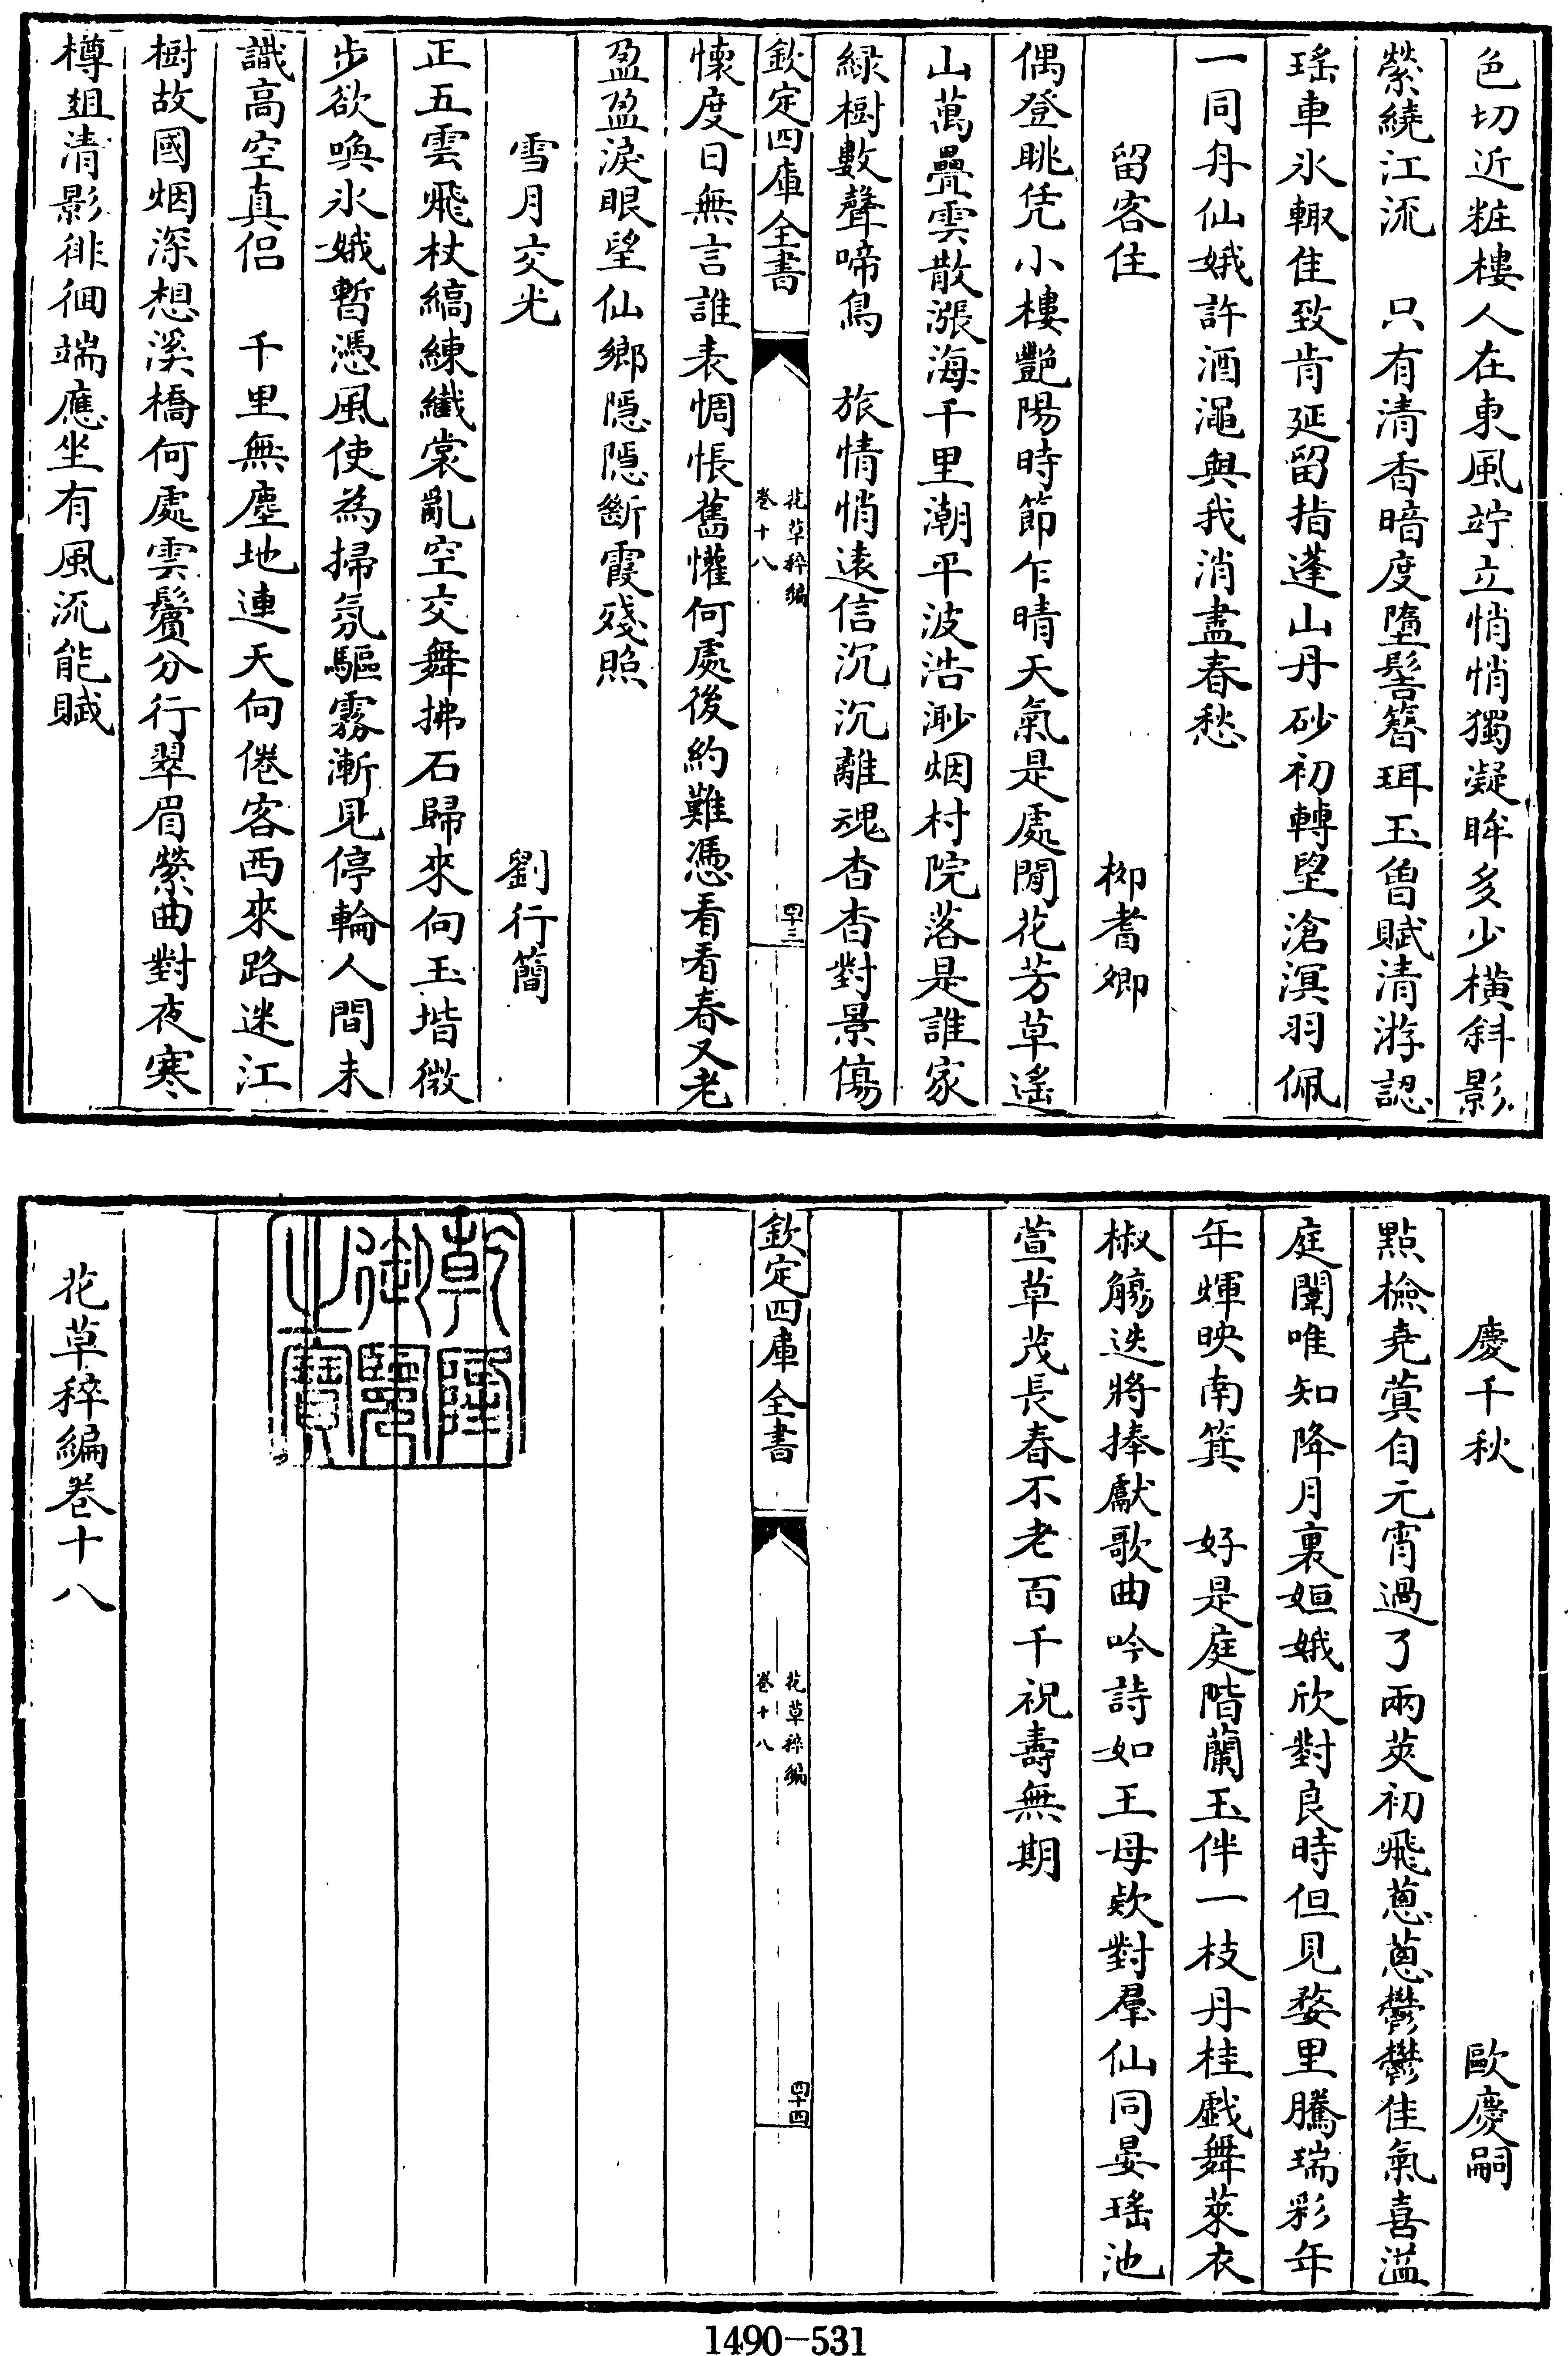 色切近粧樓人在東風竚立悄悄獨凝眸多少横斜影
縈繞江流　只有清香暗度墮髻簪珥玉曾賦清游認
瑤車氷輙佳致肯延留指蓬山丹砂初轉望滄溟羽佩
一同舟仙娥許酒澠與我消盡春愁
留客住　柳耆卿
偶登眺凭小樓艷陽時節乍晴天氣是處閒花芳草遙
山萬疊雲散漲海千里潮平波浩渺烟村院落是誰家
緑樹數聲啼鳥　旅情悄遠信沉沉離魂杳杳對景傷
欽定四庫全書
花草稡編
卷十八
四十三
懷度日無言誰表惆悵舊懽何處後約難憑看看春又老
盈盈淚眼望仙鄉隱隱斷霞殘照
雪月交光　劉行簡
正五雲飛杖縞練纖裳亂空交舞拂石歸來向玉堦微
步欲喚氷娥暫憑風使為掃氛驅霧漸見停輪人間未
識高空真侣　千里無塵地連天向倦客西來路迷江
樹故國烟深想溪橋何處雲鬢分行翠眉縈曲對夜寒
樽俎清影徘徊端應坐有風流能賦
慶千秋　歐慶嗣
點檢堯蓂自元宵過了兩莢初飛蔥蔥鬱鬱佳氣喜溢
庭闈唯知降月裏姮娥欣對良時但見婺里騰瑞彩年
年輝映南箕　好是庭階蘭玉伴一枝丹桂戯舞萊衣
椒觴迭將捧獻歌曲吟詩如王母欵對羣仙同晏瑤池
萱草茂長春不老百千祝壽無期
欽定四庫全書
花草稡編
卷十八
四十四
乾隆御覽之寶
花草稡編卷十八
1490-531